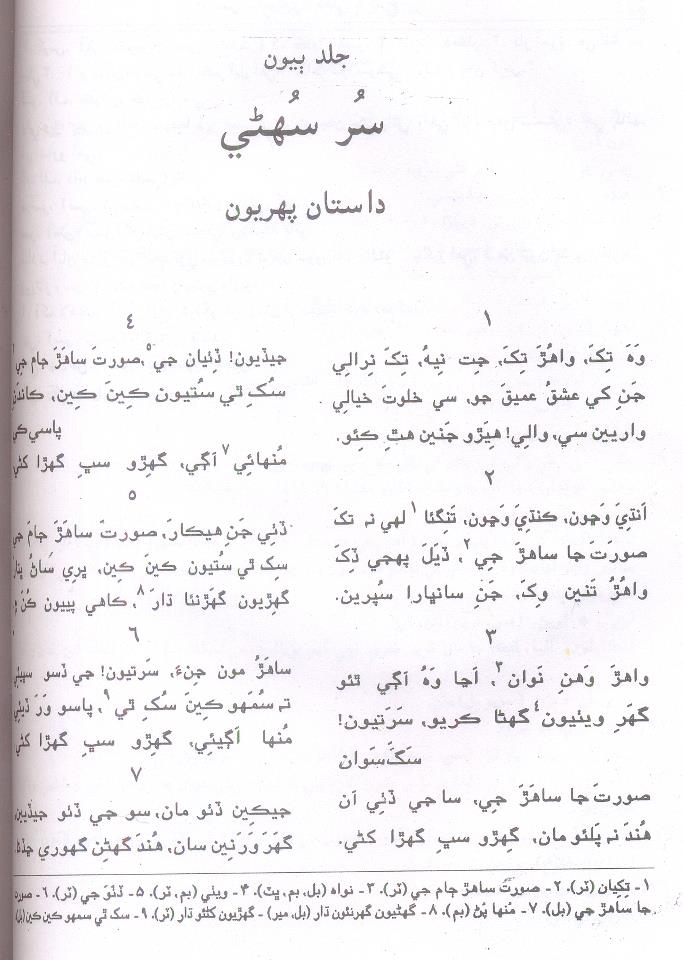 جلد ٻيون
سُر سُهڻي
داستان پهريون
١
وَهَ تِکَ، واهُڙَ تِکَ، جت نِيهُ، تِکَ نرالي
جَنِ کي عشقُ عميقَ جو، سي خلوتَ خيالي
وارِيين سي، والِي! هِيَڙو جَنين هٿِ ڪِئو.
٢
اَنڌيَ وَڄون، ڪنڌيَ وَڄون، تَنگئا ١ لهي نہ تڪَ
صورتَ جا ساهَڙَ جي ٢، ڏيلَ پهجي ڏِکَ
واهُڙُ تَنين وِکَ، جَنِ سانڀارا سُپرين.
٣
واهڙَ وَهنِ نَوان ٣، اَڃا وَهُ اڳي ٿئو
گهَرِ ويٺيون ٤ گهڻا ڪريو، سَرَتيون!
سَڱَ سَوان
صورتَ جا ساهَڙَ جي، سا جي ڏئي اَن
هُندَ نہ پَلئو مان، گهِڙو سڀِ گهڙا کڻي.
٤
جيڏيون! ڏِٺيان جي ٥، صورتَ ساهَڙَ ڄام جي
سُکِ ٿي سُتيون ڪينَ ڪِين، ڪانڌن
پاسي ڪي
مُنهائي ٧ اڳي، گهِڙو سڀِ گهڙا کڻي
٥
ڏئي جَنِ هيڪارَ، صورتَ ساهَڙَ ڄامَ جي
سِکِ ٿي سُتيون ڪينَ ڪِين، پِري ساڻُ
گهِڙيون گهَڙنئا ڌارَ ٨، ڪاهي پييون ڪُنَ
٦
ساهَڙُ مون جنءَ، سَرتيون! جي ڏسو سڀيئي
تہ سُمهو ڪِينَ سُکِ ٿي ٩، پاسو وَرَ ڏيئي
مُنها اڳيئي، گهِڙو سڀِ گهڙا کڻي
٧
جيڪِين ڏئو مان، سو جي ڏئو جيڏيين
گهَرَ وَرَنين سان، هُندَ گهڻِن گهوري
١ - تِکيان (ٽر). ٢ - صورتُ ساهڙَ ڄام جي (ٽر). ٣ - نواه (بل، بم، ڀٽ). ۴ - ويئي (بم، ٽر). ۵ - ڏٺو جي (ٽر). ٦ - صورت
جا ساهڙ جي (بل). ٧ - مُنها پُڻ (بم). ٨ - گهڻيون گهرنئون ڌار (بل، مير) - گهڙيون کڻئو ڌار (ٽر). ٩ - سک ٿي سمهو ڪين ڪين (بل)